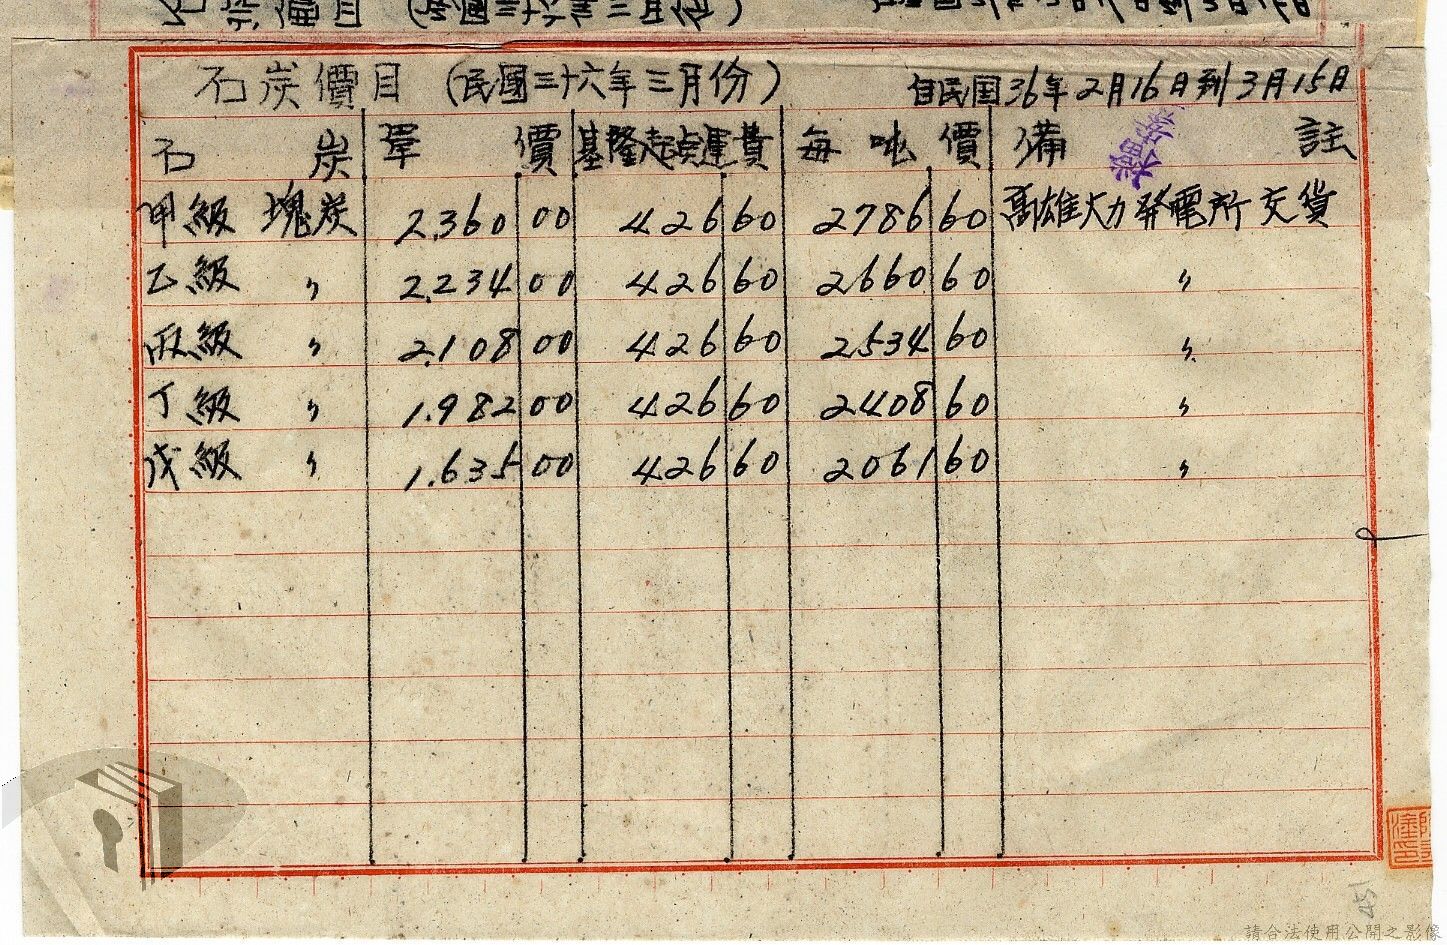 石炭價目（民國三十六年三月份） 自民国36年2月16日到3月15日
石炭 單價 基隆起点運費 每吨價 備註
甲級 塊炭 2.360 00 426 60 2786 60 高雄火力発電所交貨
乙級 〃 2.234 00 426 60 2660 60 〃
丙級 〃 2.108 00 426 60 2534 60 〃
丁級 〃 1.982 00 426 60 2408 60 〃
戊級 〃 1.635 00 426 60 2061 60 〃
請合法使用公開之影像